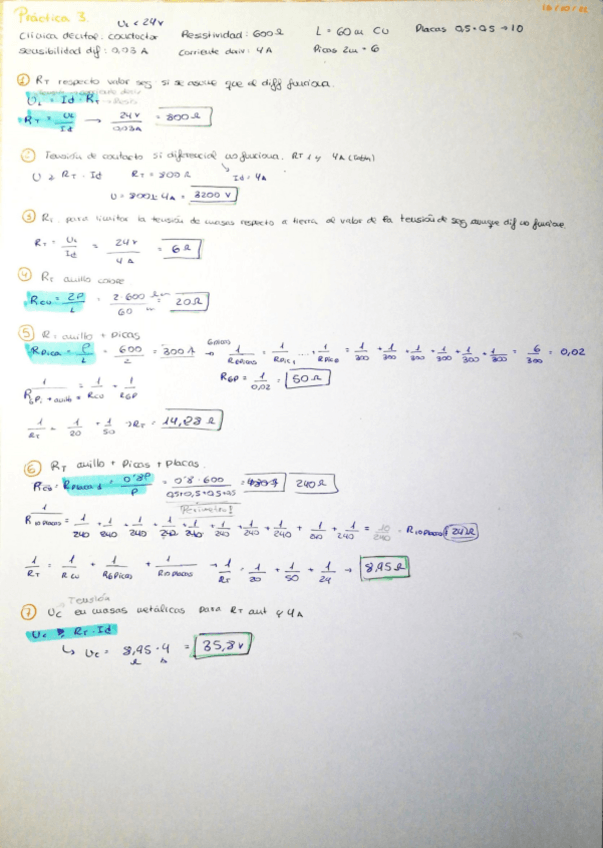 Práctica 3.
UL < 24V
Clínica dental. conductor Resistividad: 600 Ω L = 60 m Cu Placas 0,5 · 0,5 → 10
sensibilidad dif: 0,03 A Corriente deriv: 4 A Picas 2m = 6
① RT respecto valor seg si se asume que el diff funciona.
UL = Id · RT
RT = UL/Id → 24V/0,03A = 800 Ω
② Tensión de contacto si diferencial no funciona. RT 1 y 4A
U = RT · Id RT = 800 Ω Id = 4A
U = 800 Ω · 4A = 3200 V
③ RT para limitar la tensión de masas respecto a tierra al valor de la tensión de seg aunque dif no funcione
RT = UL/Id = 24V/4A = 6 Ω
④ RT anillo cobre
RCU = 2P/L = 2·600/60 = 20 Ω
⑤ RT anillo + picas
RPICA = P/L = 600/2 = 300 Λ → 6 picas 1/R6picas = 1/Rpic1 ... + 1/Rpic6 = 1/300 + 1/300 + 1/300 + 1/300 + 1/300 + 1/300 = 6/300 = 0,02
R6P = 1/0,02 = 50 Ω
1/R6Pi + anillo = 1/RCU + 1/R6P
1/RT = 1/20 + 1/50 → RT = 14,28 Ω
⑥ RT anillo + Picas + placas.
Rplaca = 0'8P/P = 0'8·600/0,5+0,5+0,5+0,5 = 240 Ω
Perímetro!
1/R10placas = 1/240 + 1/240 + 1/240 + 1/240 + 1/240 + 1/240 + 1/240 + 1/240 + 1/240 + 1/240 = 10/240 · R10placas = 24 Ω
1/RT = 1/RCU + 1/R6picas + 1/R10placas → 1/RT = 1/20 + 1/50 + 1/24 → 8,95 Ω
Tensión
⑦ UC en masas metálicas para RT ant y 4A
UC = RT · Id
↳ UC = 8,95 · 4 = 35,8 V